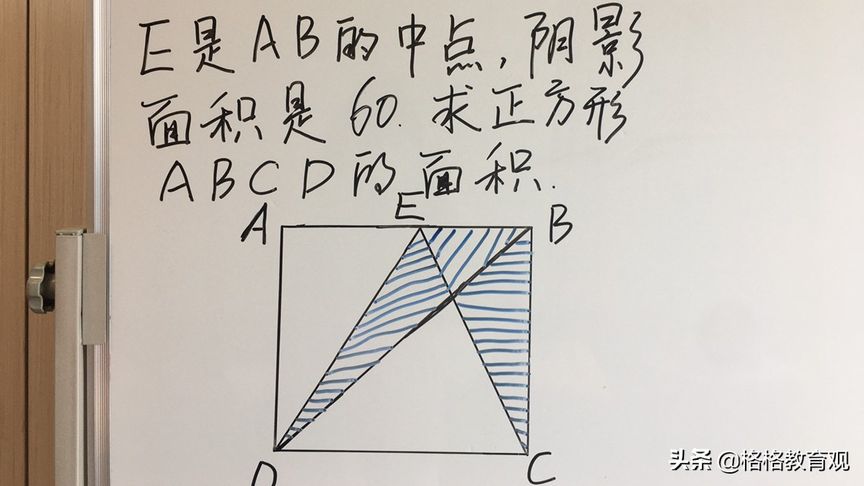 E是AB的中点,阴影
面积是60.求正方形
ABCD的面积.
A E B
D C
头条 @格格教育观